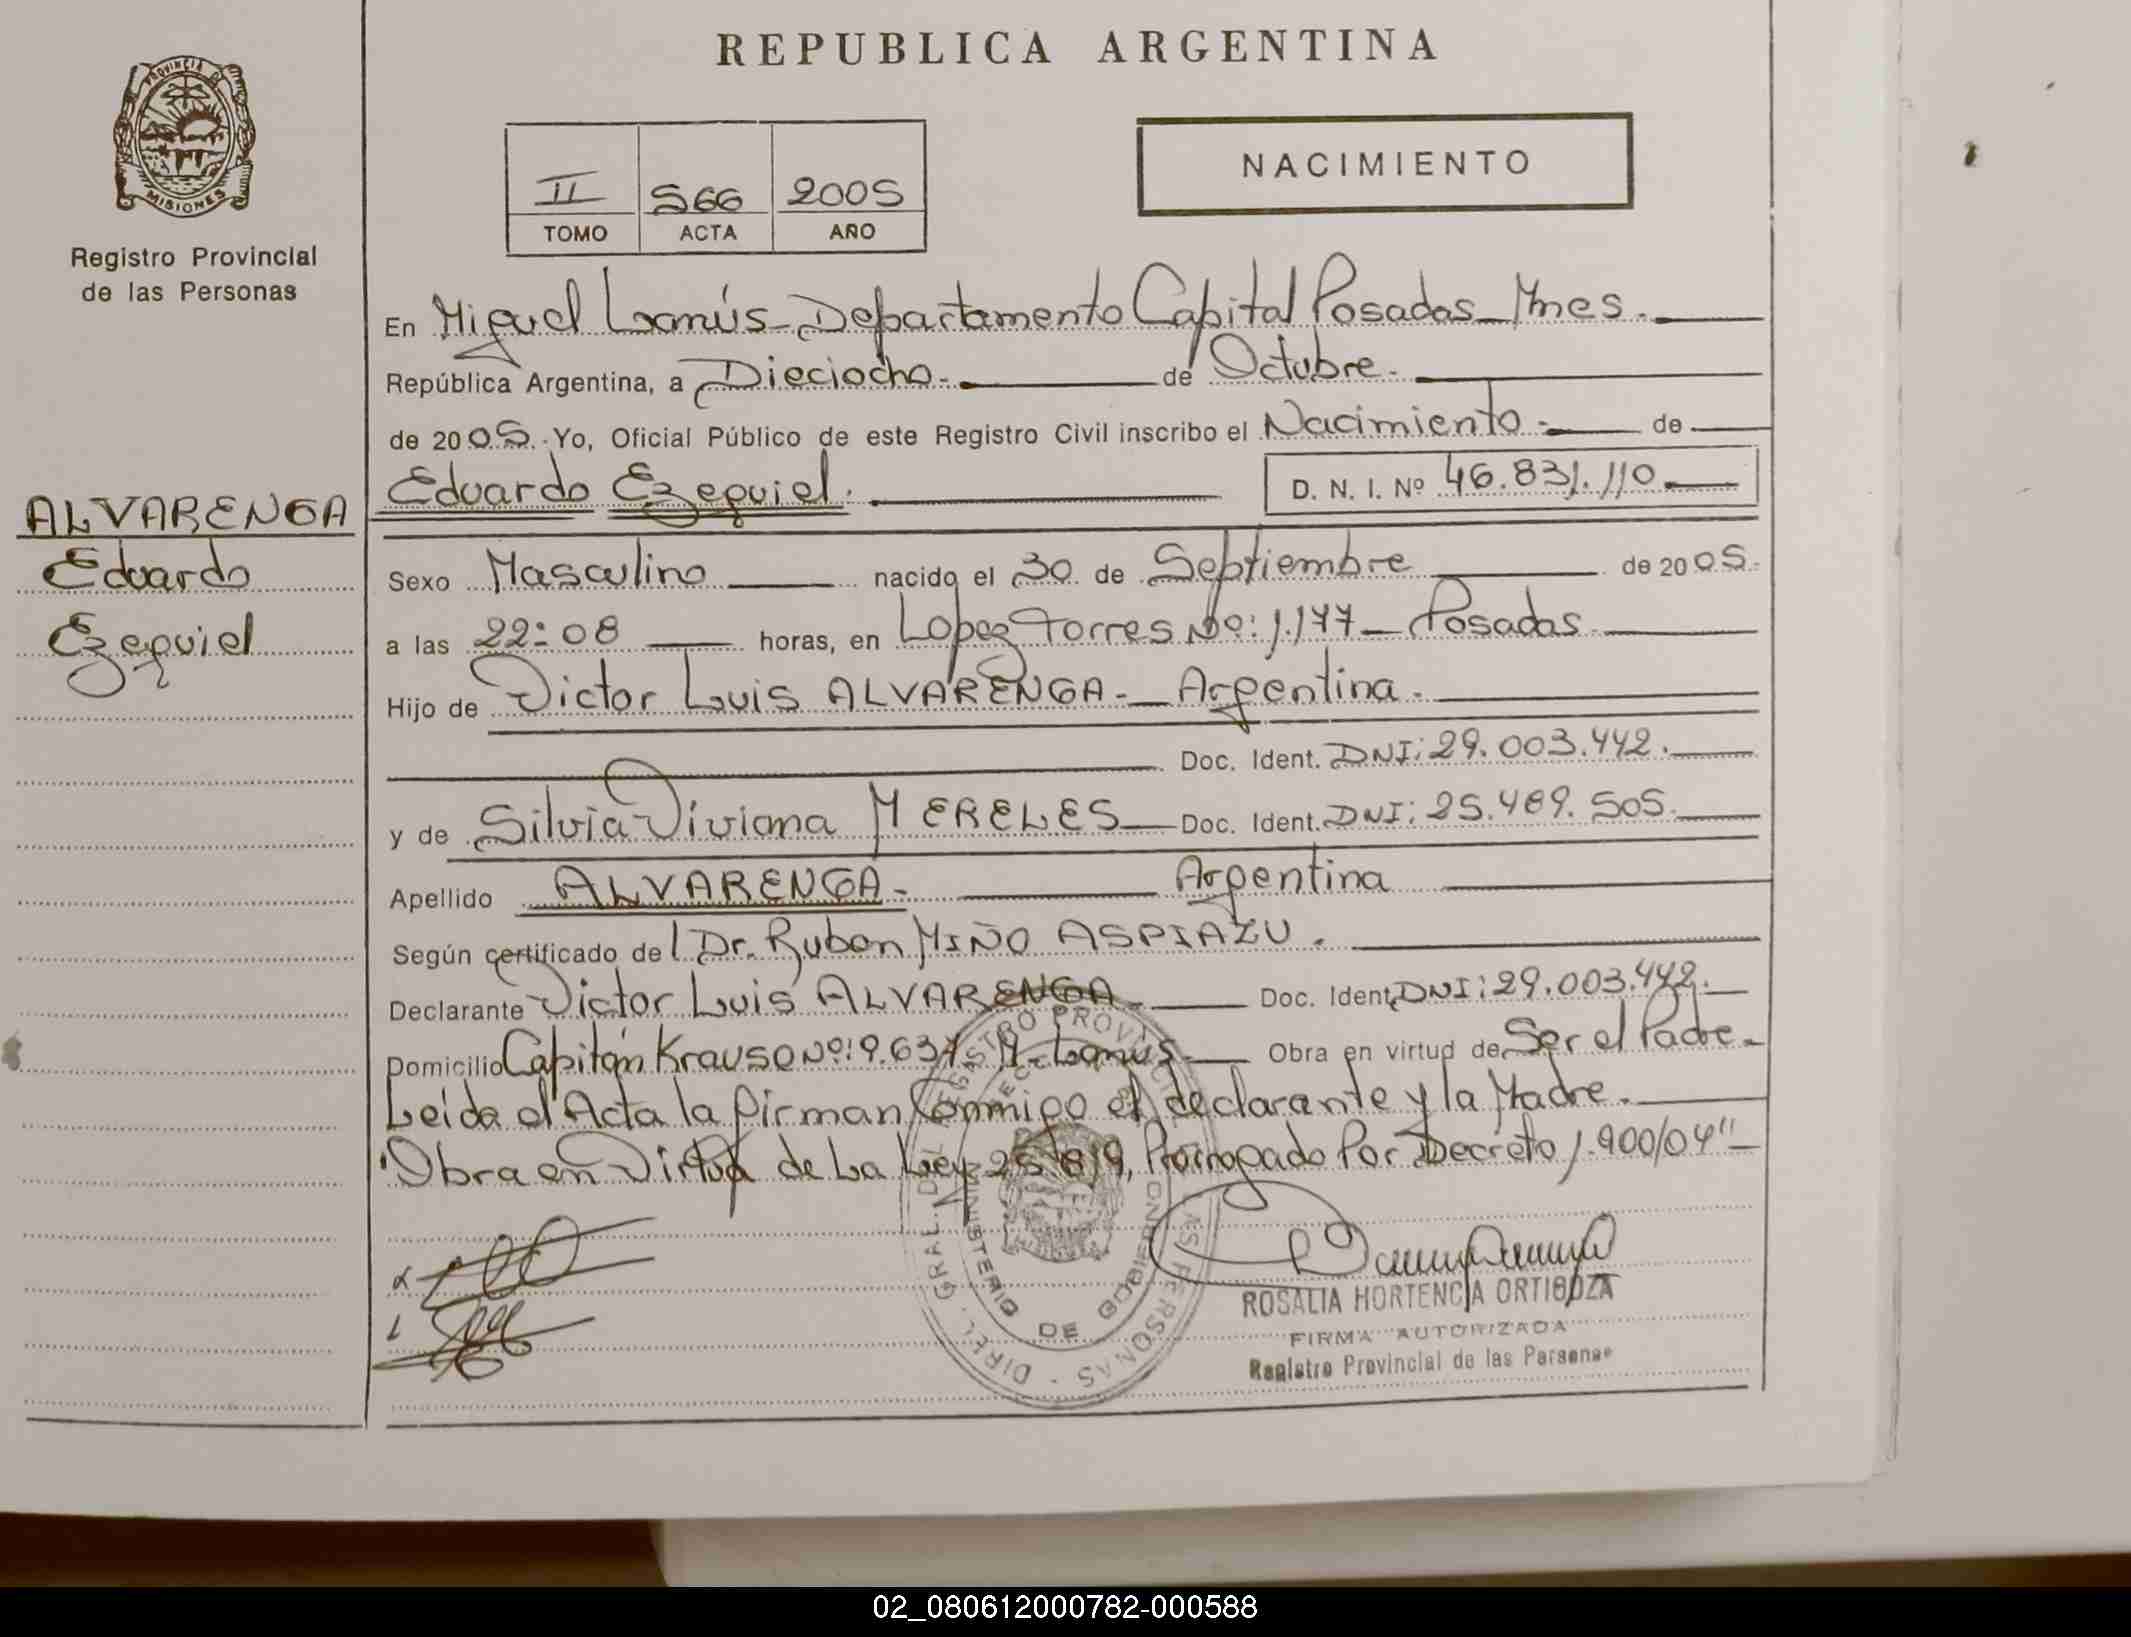 REPUBLICA ARGENTINA
PROVINCIA DE
MISIONES
Registro Provincial
de las Personas
II 566 2005
TOMO ACTA AÑO
NACIMIENTO
En Miguel Lanús - Departamento Capital Posadas - Mnes.
República Argentina, a Dieciocho. de Octubre.
de 2005. Yo, Oficial Público de este Registro Civil inscribo el Nacimiento. de
ALVARENGA
Eduardo
Ezequiel
Eduardo Ezequiel. D. N. I. Nº 46.831.110
Sexo Masculino nacido el 30 de Septiembre de 2005.
a las 22:08 horas, en Lopez Torres No: 1.177 - Posadas.
Hijo de Victor Luis ALVARENGA. - Argentina.
Doc. Ident. DNI: 29.003.442.
y de Silvia Viviana MERELES Doc. Ident. DNI: 25.489.505.
Apellido ALVARENGA. Argentina
Según certificado del Dr. Ruben MIÑO ASPIAZU.
Declarante Victor Luis ALVARENGA. Doc. Ident. DNI: 29.003.442.
Domicilio Capitán Krause Nº: 9.637 M. Lanús. Obra en virtud de Ser el Padre.
Leída el Acta la firman Conmigo el declarante y la Madre.
"Obra en Virtud de La Ley 25.819, Prorrogado Por Decreto 1.900/04"
DIREC. GRAL. DEL REGISTRO PROVINCIAL DE LAS PERSONAS
MINISTERIO DE GOBIERNO
ROSALIA HORTENCIA ORTIGOZA
FIRMA AUTORIZADA
Registro Provincial de las Personas
02_080612000782-000588